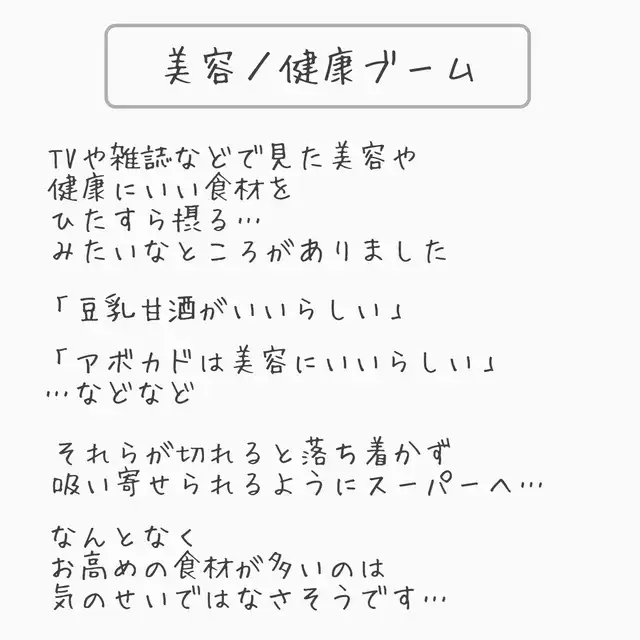 美容/健康ブーム
TVや雑誌などで見た美容や
健康にいい食材を
ひたすら摂る…
みたいなところがありました
「豆乳甘酒がいいらしい」
「アボカドは美容にいいらしい」
…などなど
それらが切れると落ち着かず
吸い寄せられるようにスーパーへ…
なんとなく
お高めの食材が多いのは
気のせいではなさそうです…